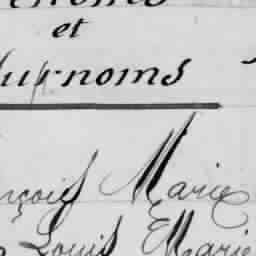 et
urnoms
nçois Marie
Louis Marie